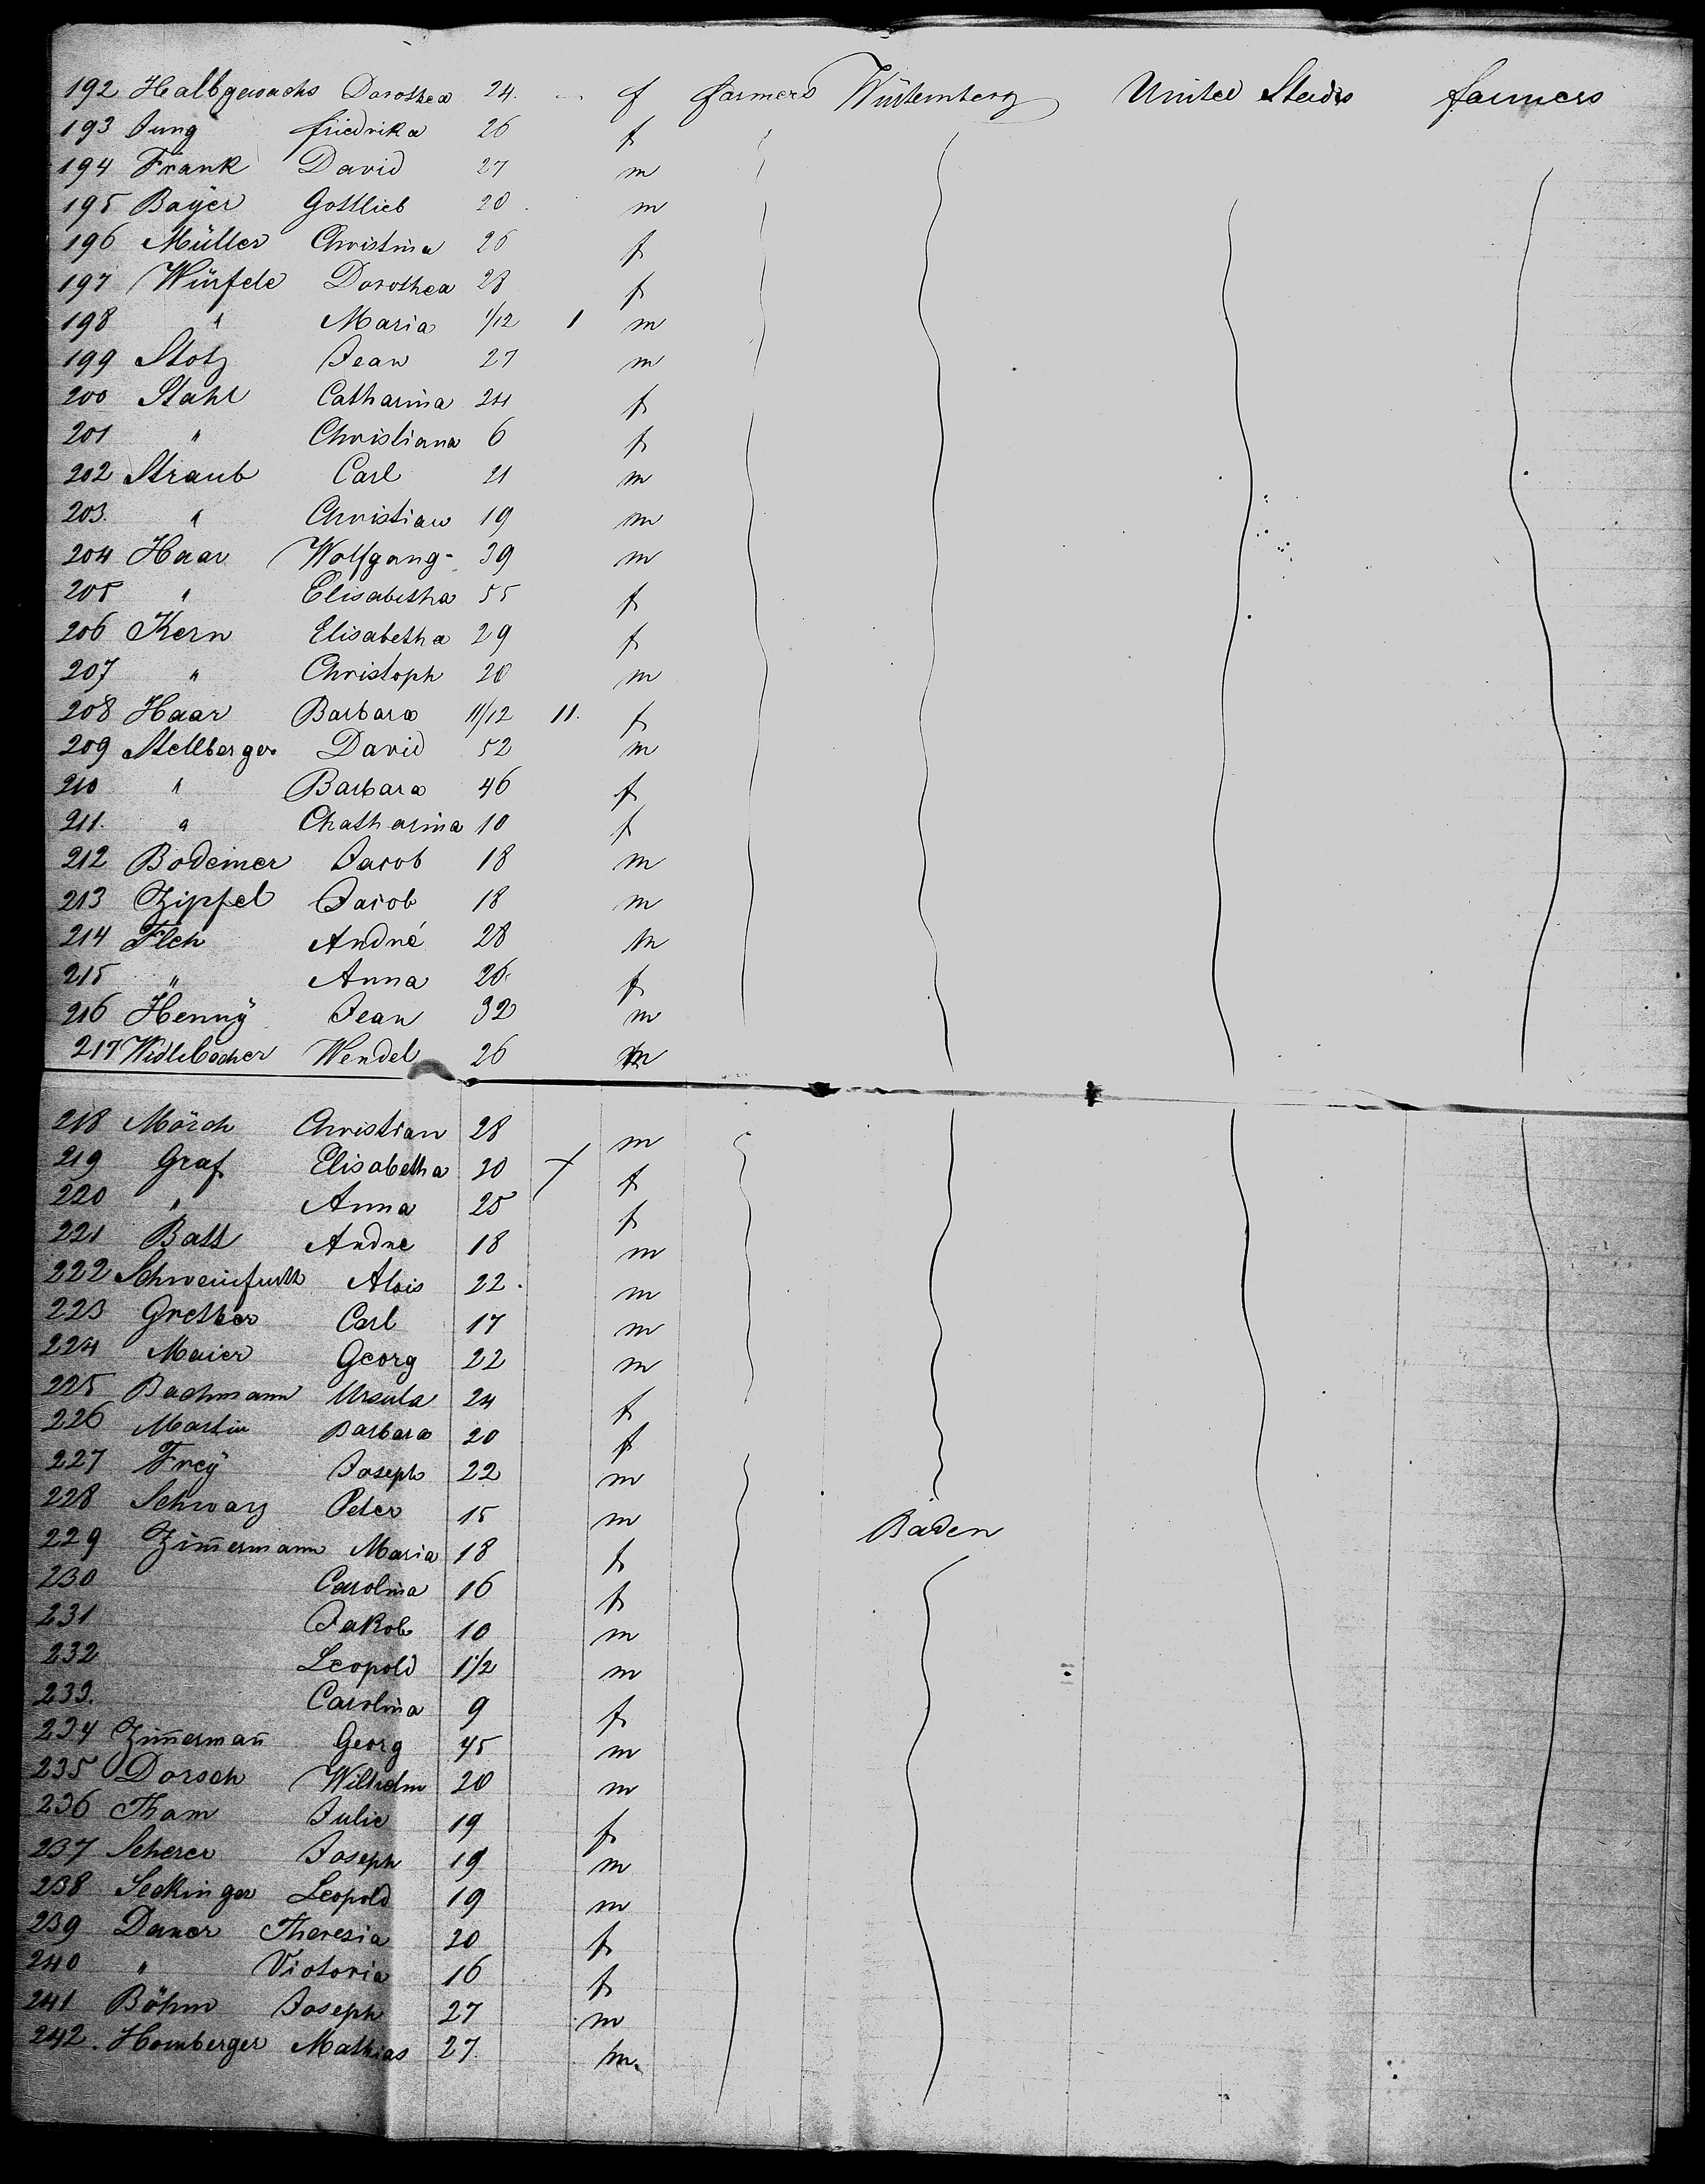 192 Halbgewachs Dorothea 24. - f farmers Würtemberg United Staids farmers
193 Jung friedrika 26 f
194 Frank David 27 m
195 Bayer Gottlieb 20 m
196 Müller Christina 26 f
197 Würfele Dorothea 28 f
198 " Maria 1/12 1 m
199 Stotz Jean 27 m
200 Stahl Catharina 24 f
201 " Christiana 6 f
202 Straub Carl 21 m
203. " Christian 19 m
204 Haar Wolfgang - 39 m
205 " Elisabetha 55 f
206 Kern Elisabetha 29 f
207 " Christoph 20 m
208 Haar Barbara 11/12 11. f
209 Stellberger David 52 m
210 " Barbara 46 f
211. " Chatharina 10 f
212 Bodemer Jacob 18 m
213 Zipfel Jacob 18 m
214 Fleh André 28 m
215 " Anna 26. f
216 Henny Jean 32 m
217 Wendel 26 m
218 Mörch Christian 28 m
219 Graf Elisabetha 20 f
220 " Anna 25 f
221 Batt Andre 18 m
222 Schweinfurth Alois 22. m
223 Grether Carl 17 m
224 Maier Georg 22 m
225 Bachmann Ursula 24 f
226 Martin Barbara 20 f
227 Frey Joseph 22 m
228 Schwarz Peter 15 m Baden
229 Zim̄ermann Maria 18 f
230 Carolina 16 f
231 Jakob 10 m
232 Leopold 11/2 m
233. Carolina 9 f
234 Zim̄erman̄ Georg 45 m
235 Dorsch Wilhelm 20 m
236 Tham Julie 19 f
237 Scherer Joseph 19 m
238 Seckinger Leopold 19 m
239 Daner Theresia 20 f
240 " Victoria 16 f
241 Böhm Joseph 27 m
242. Homberger Mathias 27. m.